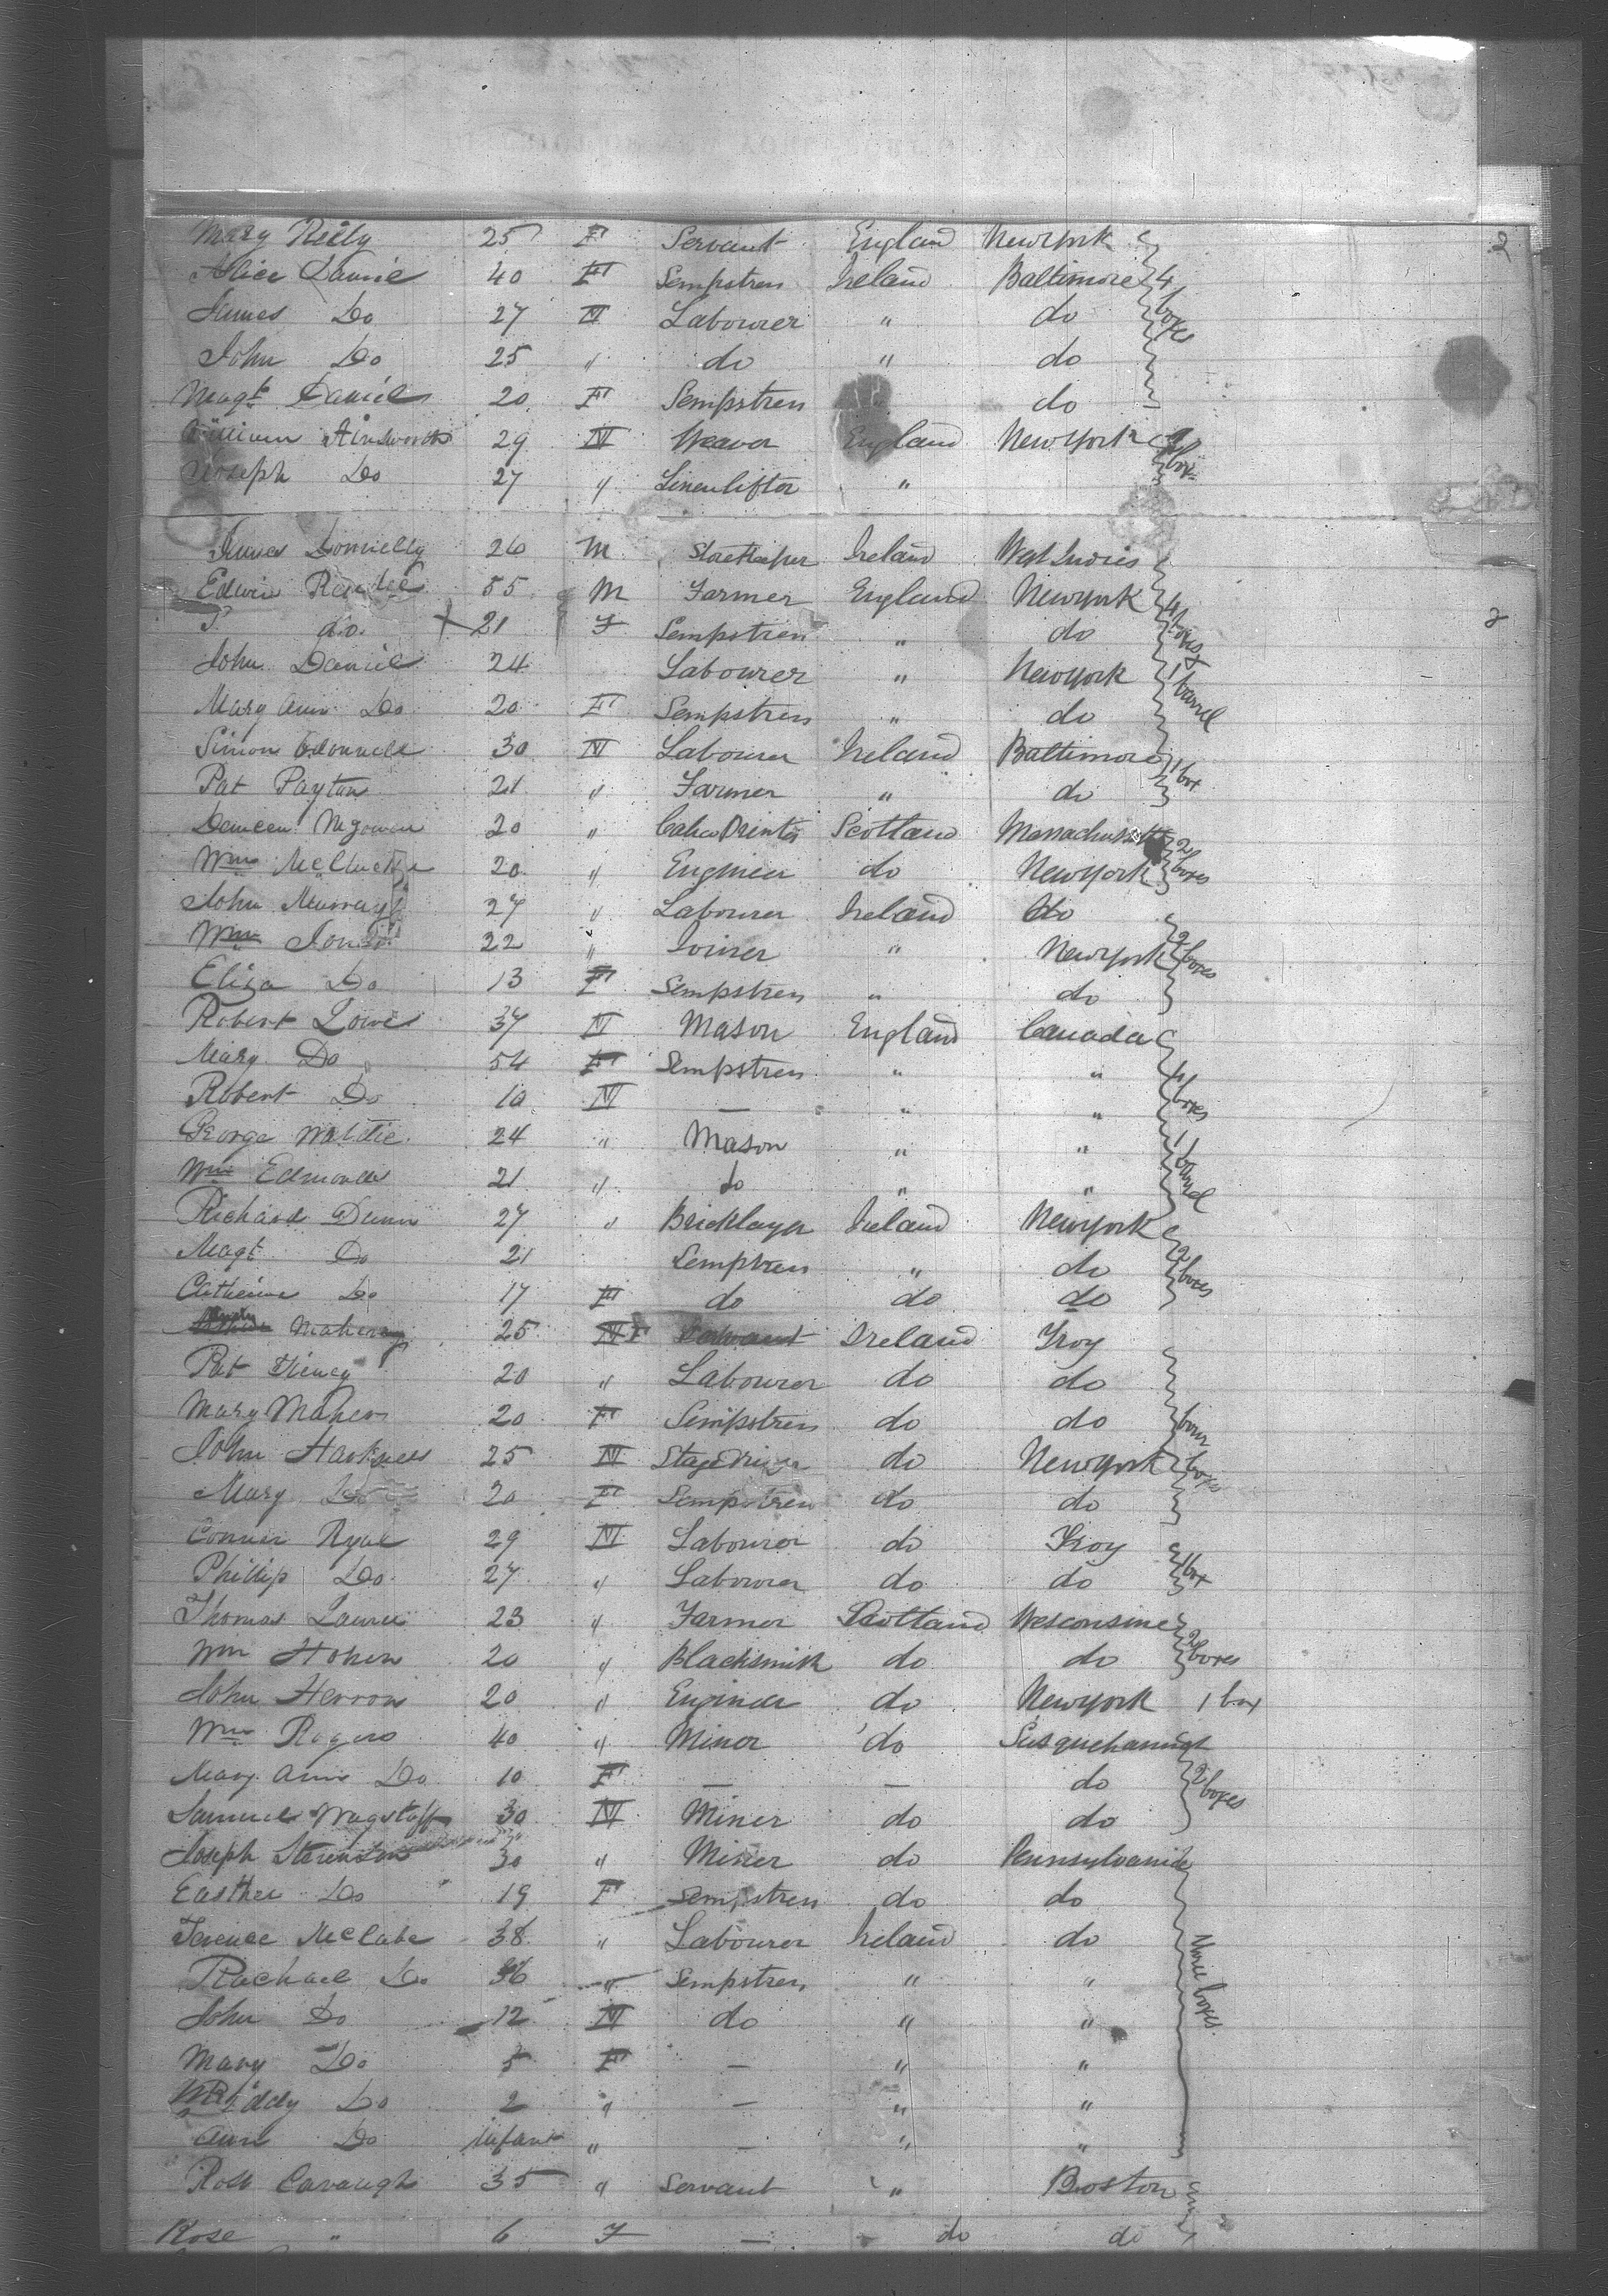 Mary Reily 25 F Servant England New York 2
Alice Daniel 40 F Sempstres Ireland Baltimore 4 boxes
James Do 27 M Labourer " do
John Do 25 " do " do
Magt. Daniel 20 F Sempstres " do
William Ainsworth 29 M Weaver England New York box
Joseph Do 27 " "
James Donnelly 26 M Storekeeper Ireland West Indies
Edwin 55 M Farmer England New York 4 boxes 2
do. X 21 F Sempstres " do
John Daniel 24 Labourer " New York 1 barrel
Mary Ann Do 20 F Sempstres " do
Simon Odonnell 30 M Labourer Ireland Baltimore 1 box
Pat Payton 21 " Farmer " do
20 " Calico Printer Scotland Massachusetts 2 boxes
Wm 20 " Engineer do New York
John Murray 27 " Labourer Ireland do
Wm Jones 22 " Joiner " New York 2 boxes
Eliza Do 13 F Sempstres " do
Robert Lowe 37 M Mason England Canada
Mary Do 54 F Sempstres " " 4 boxes
Robert Do 10 M — " "
George Waldie 24 " Mason " " 1 barrel
Wm Edmonds 21 " do " "
Richard Dunn 27 " Bricklayer Ireland New York
Magt Do 21 Sempstres " do 2 boxes
Catherine Do 17 F do do do
25 F Servant Ireland Troy
Pat 20 " Labourer do do
Mary Maher 20 F Sempstres do do four
John Harkness 25 M Stage Driver do New York boxes
Mary Do 20 F Sempstres do do
29 M Labourer do Troy
Phillip Do 27 " Labourer do do 1 box
Thomas Laurie 23 " Farmer Scotland Wesconsine
Wm 20 " Blacksmith do do 2 boxes
John Herron 20 " Engineer do New York 1 box
Wm Rogers 40 " Miner do
Mary Ann Do 10 F — — do 2 boxes
Samuel Wagstaff 30 M Miner do do
Joseph 30 " Miner do Pennsylvania
Easther Do 19 F Sempstres do do
Terence McCabe 38 " Labourer Ireland do Nine boxes.
Rachael Do 36 " Sempstres " "
John Do 12 M do " "
Mary Do 5 F — " "
Do 2 " — " "
Ann Do Infant " — " "
Cavaugh 35 " Servant " Boston
Rose " 6 F — do do